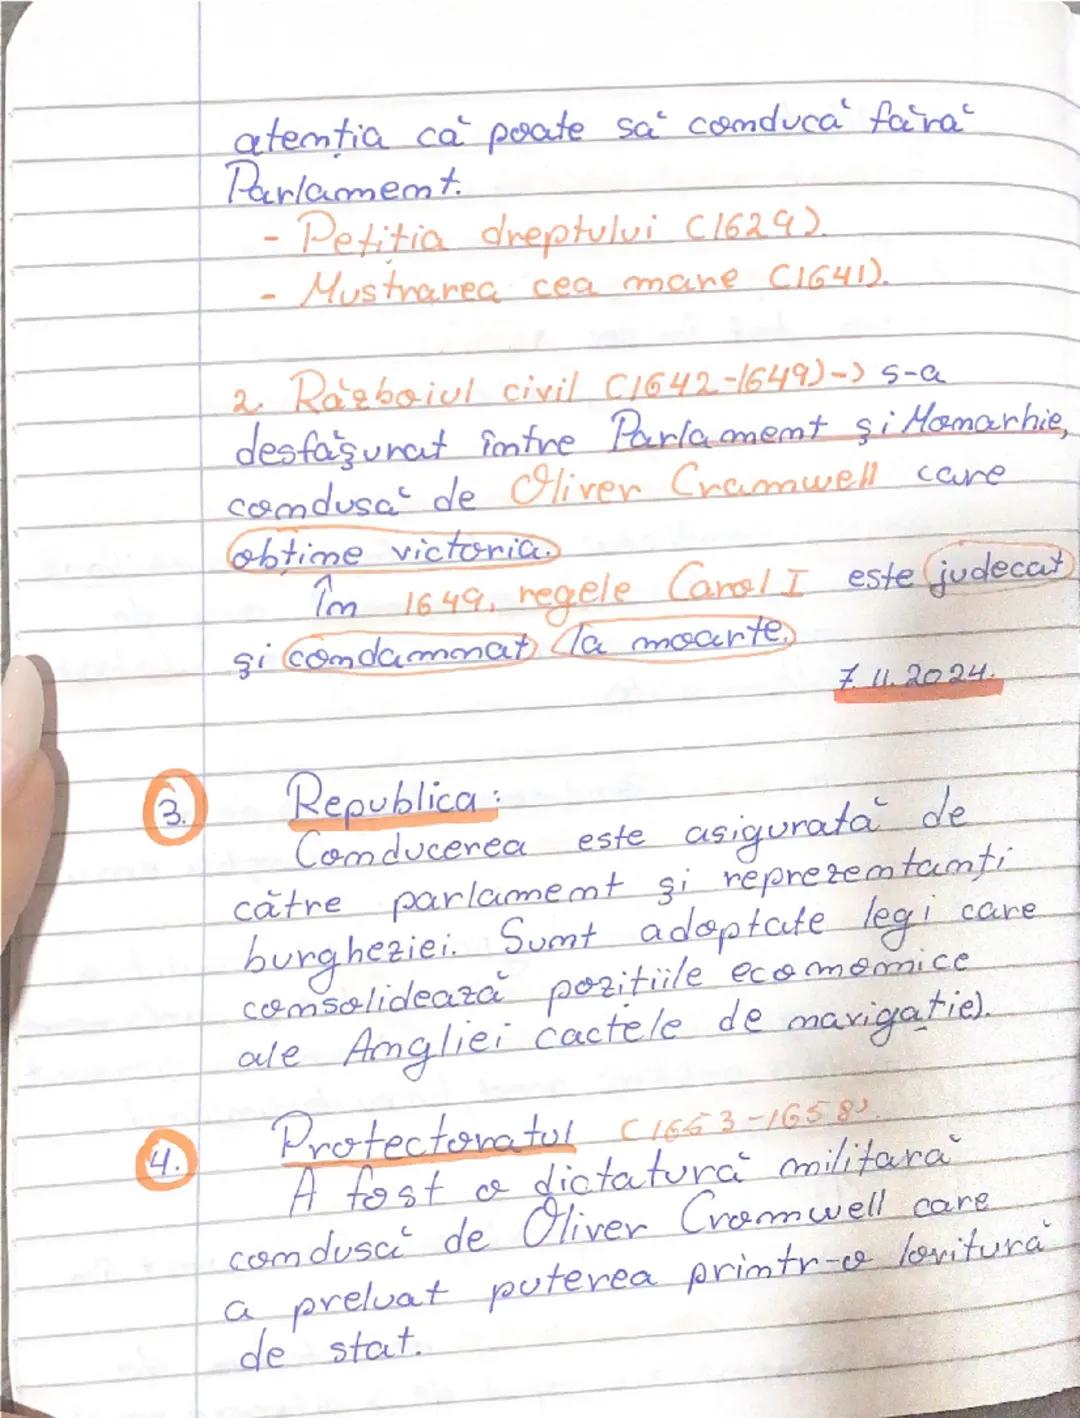 atenția că poate să conducă fără
Parlament.
- Petiția dreptului (1629).
- Mustrarea cea mare (1641).
2. Războiul civil (1642-1649)-> s-a
desfășurat între Parlament și Monarhie,
condusă de Oliver Cramwell care
obține victoria.
În 1649, regele Carol I este judecat
și condamnat la moarte.
7.11.2024.
3. Republica:
Conducerea este asigurată de
către parlament și reprezentanți
burgheziei. Sunt adoptate legi care
consolidează pozitiile economice
ale Angliei (actele de navigație).
4. Protectoratul (1653-1658).
A fost o dictatură militară
condusă de Oliver Cromwell care
a preluat puterea printr-o lovitură
de stat.